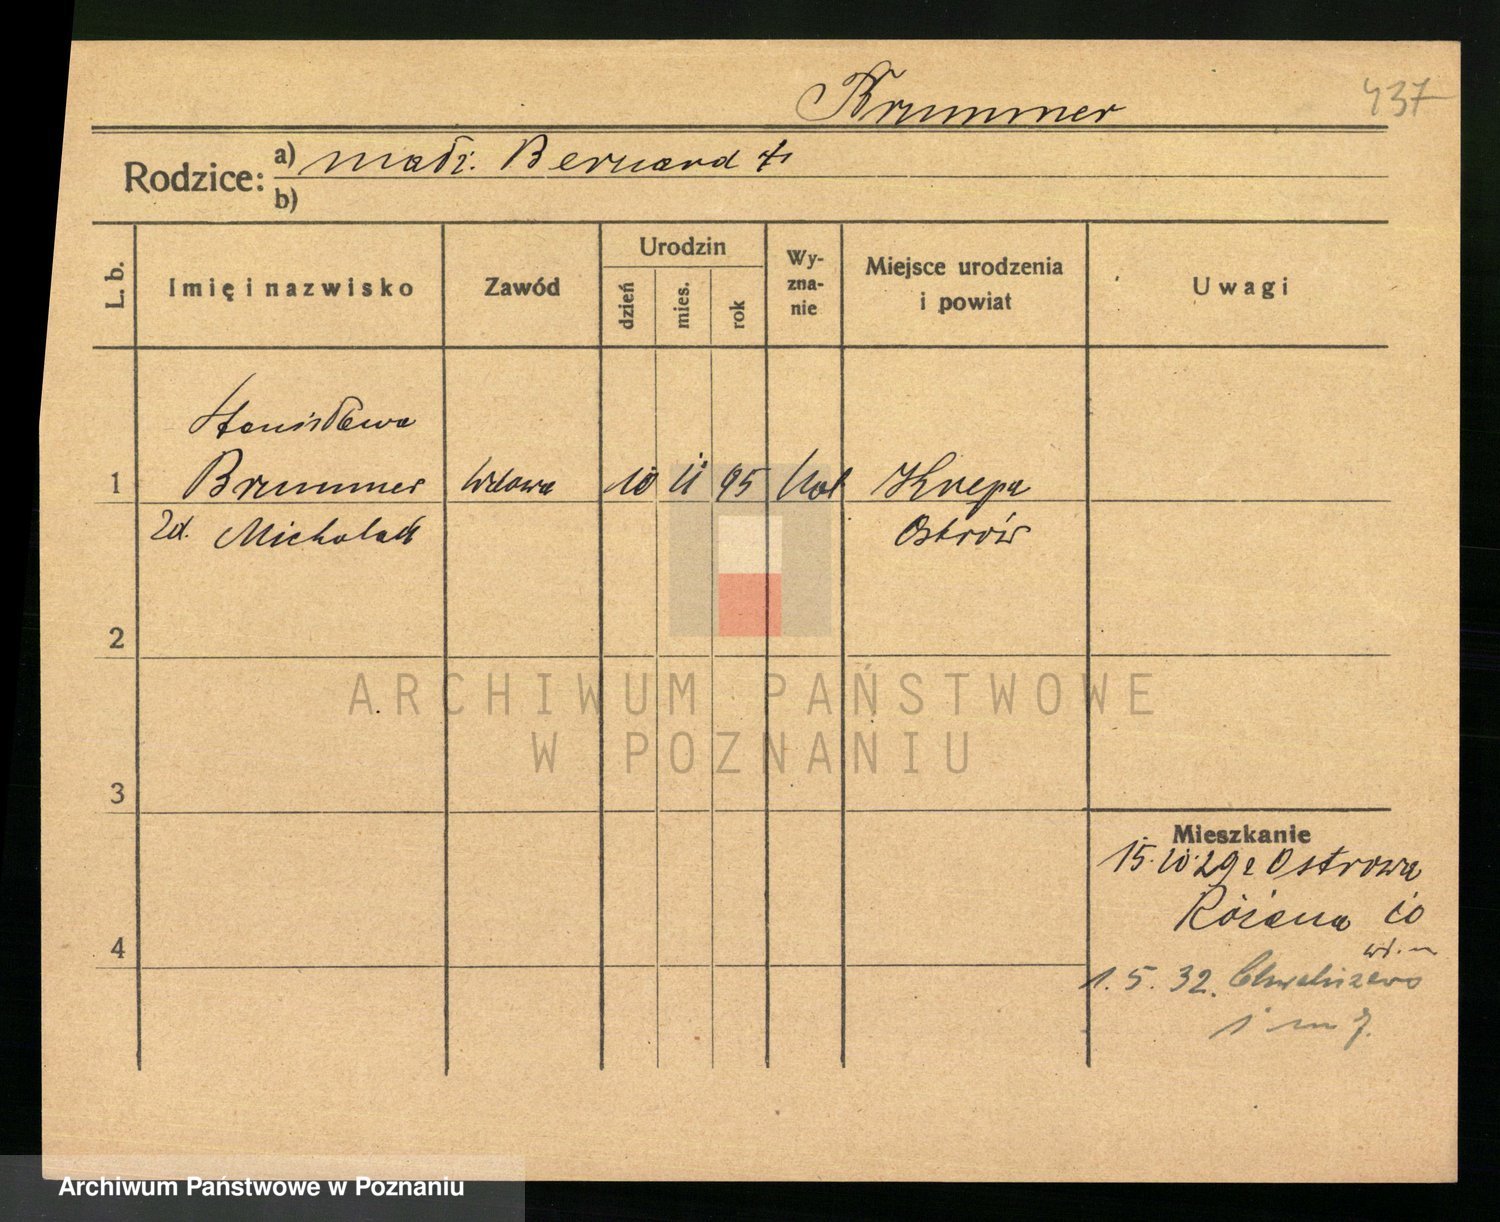 Brummer 437
Rodzice: a) małż. Bernard
b)
L. b. Imię i nazwisko Zawód Urodzin dzień mies. rok Wy-zna-nie Miejsce urodzenia i powiat Uwagi
Stanisława
1 Brummer Wdowa 10 11 95 kat Krępa
zd. Micholak Ostrów
2
3
4
Mieszkanie
15.10.29 z Ostrowa
Różana 10
1.5.32. Chwaliszewo
1 m 7.
ARCHIWUM PAŃSTWOWE
W POZNANIU
Archiwum Państwowe w Poznaniu